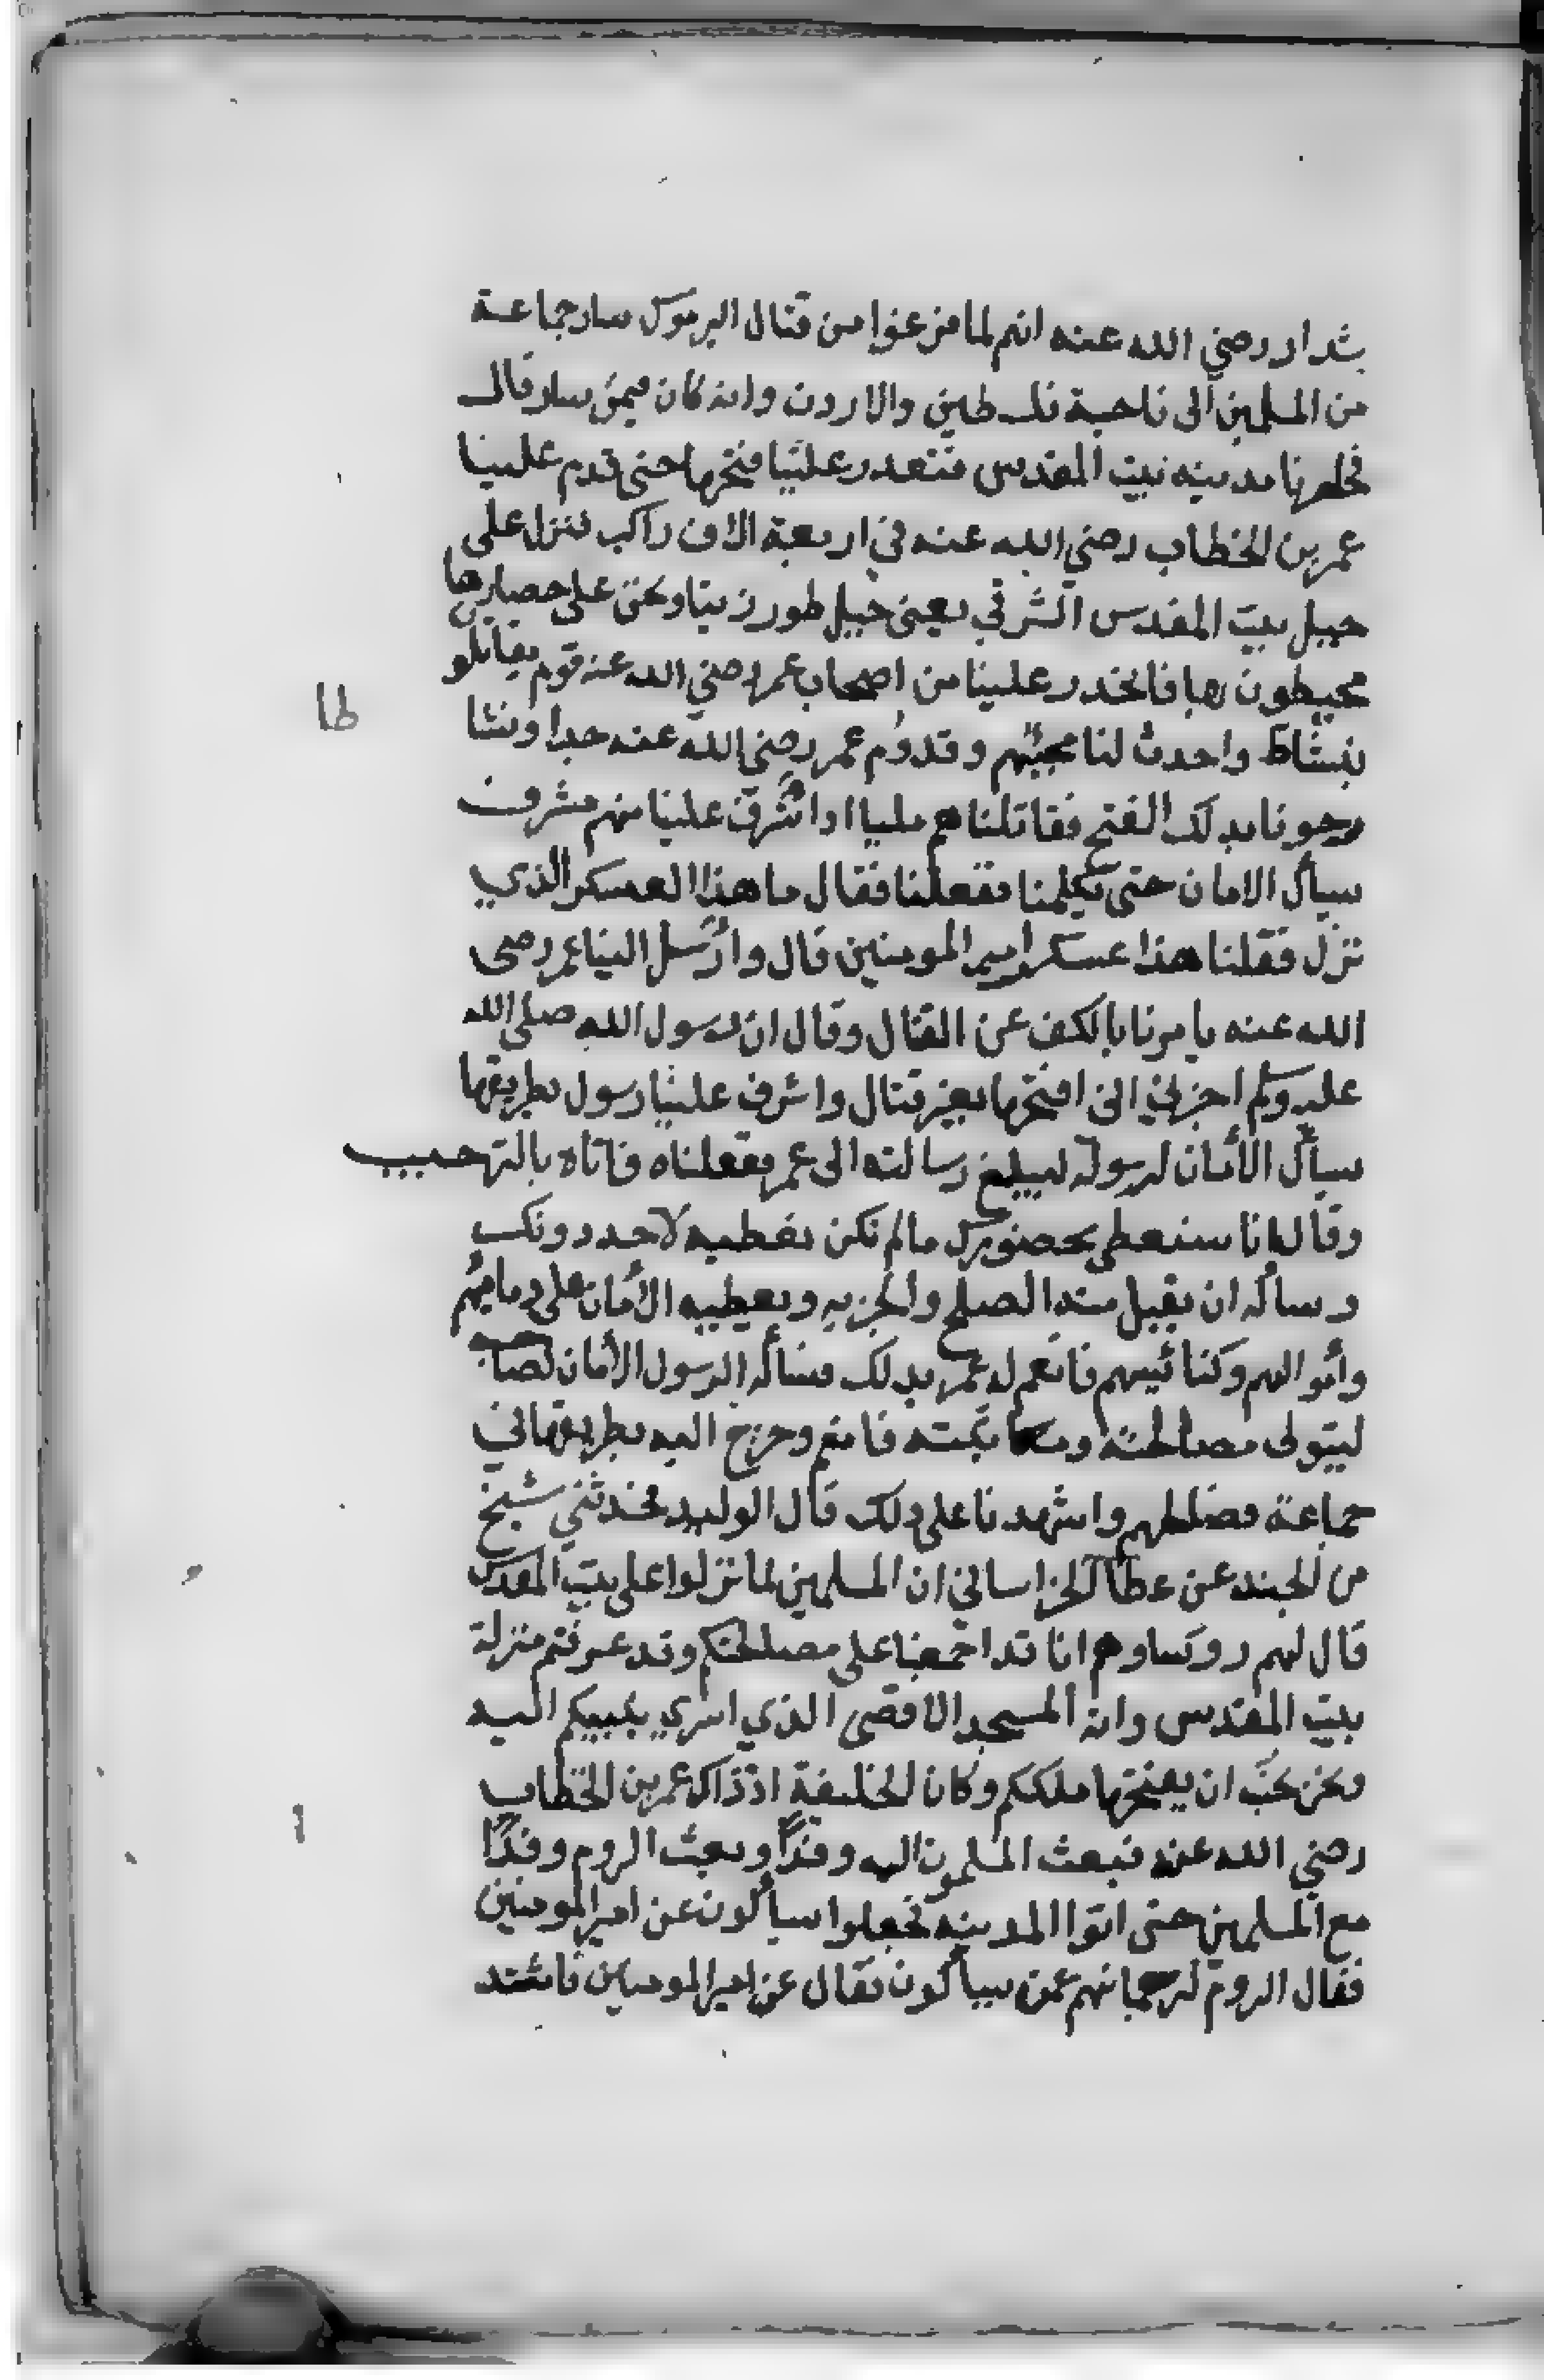 شداد رضي الله عنه انهم لما فرغوا من قتال اليرموك سار جماعة
من المسلمين الى ناحية فلسطين والاردن وانه كان فيمن سار قال
فحاصرنا مدينه بيت المقدس فتعدر علينا فتحها حتى قدم علينا
عمر بن الخطاب رضي الله عنه في اربعة الاف راكب فنزل على
جبل بيت المقدس الشرقي يعني جبل طور زيتا ونحن على حصارها
محيطون بها فانحدر علينا من اصحاب عمر رضي الله عنه قوم يقاتلو
بنشاط واحدث لنا مجيئهم وقدوم عمر رضي الله عنه جدا ونشا
طا
ورجونا بدلك الفتح فقاتلناهم مليا اد اشرف علينا منهم مشرف
يسأل الامان حتى يكلمنا ففعلنا فقال ما هذا العسكر الذي
نزل فقلنا هذا عسكر امير المومنين قال وارسل الينا عمر رضى
الله عنه يامرنا بالكف عن القتال وقال ان رسول الله صلى الله
عليه وسلم اخبرني انى افتحها بغير قتال واشرف علينا رسول بطريقها
يسأل الأمان لرسوله ليبلغ رسالته الى عمر ففعلناه فاتاه بالترحيب
وقال انا سنعطى بحضورك ما لم نكن نعطيه لاحد دونك
وساله ان يقبل منه الصلح والجزيه ويعطيه الأمان على دمايهم
وأموالهم وكنائيسهم فانعم له عمر بدلك فسأله الرسول الأمان لصاحبه
ليتولى مصالحته ومكاتبته فانعم وخرج اليه بطريقها في
جماعة فصالحهم واشهدنا على دلك قال الوليد فحدثني شيخ
من الجند عن عطا الخراساني ان المسلمين لما نزلوا على بيت المقدس
قال لهم روساوهم انا قد اجمعنا على مصالحتكم وقد عرفتم منزلة
بيت المقدس وانه المسجد الاقصى الذي اسري بنبيكم اليه
ونحن نحب ان يفتحها ملككم وكان الخليفة اذ ذاك عمر بن الخطاب
رضي الله عنه فبعث المسلمون اليه وفدًا وبعث الروم وفدًا
مع المسلمين حتى اتوا المدينه فجعلوا يسألون عن امير المومنين
فقال الروم لترجمانهم عمن يسألون فقال عن امير المومنين فاشتد